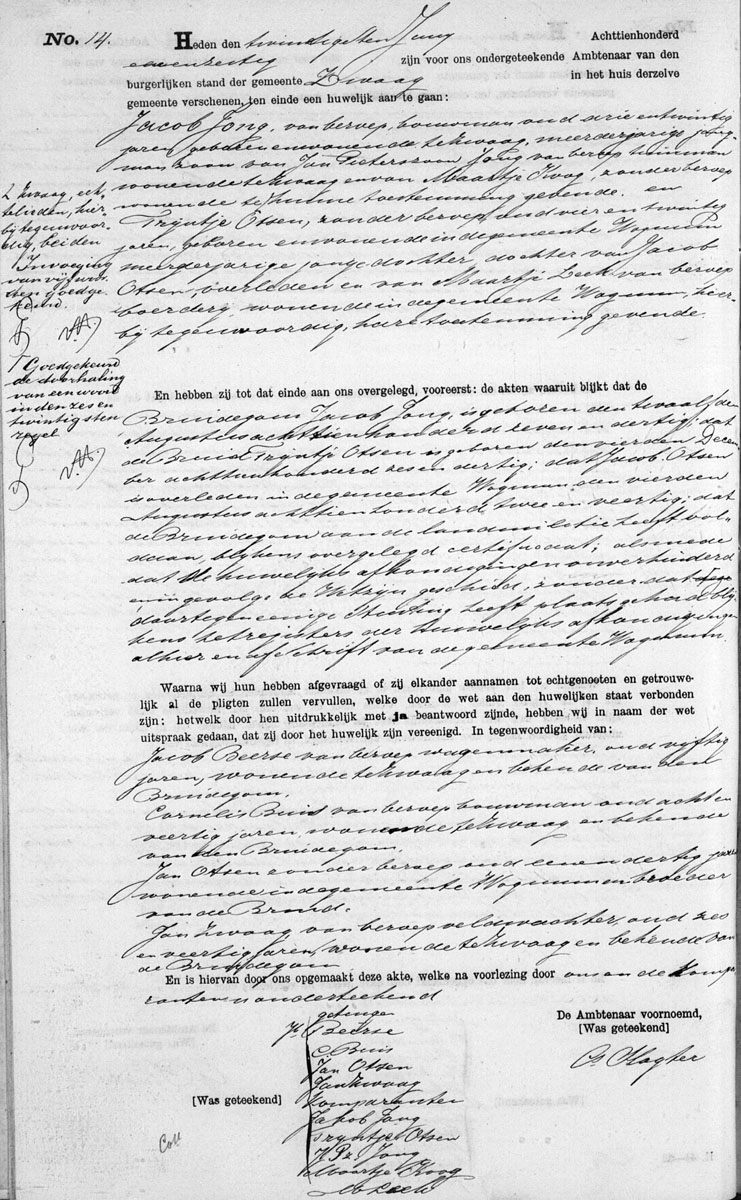 No. 14.
Heden den twintigsten Juny Achttienhonderd
eenenzestig zijn voor ons ondergeteekende Ambtenaar van den
burgerlijken stand der gemeente Zwaag in het huis derzelve
gemeente verschenen, ten einde een huwelijk aan te gaan:
Jacob Jong, van beroep, bouwman oud drie en twintig
jaren, geboren en wonende te Zwaag, meerderjarige jong-
man zoon van Jan Pieterszoon Jong van beroep
wonende te Zwaag en van Maartje Koog, zonder beroep
wonende te hunne toestemming gevende. en
Trijntje Otsen, zonder beroep, oud vier en twintig
jaren, geboren en wonende in de gemeente Wognum
meerderjarige jonge dochter, dochter van Jacob
Otsen, overleden en van Maartje Leek van beroep
boerderij, wonende in de gemeente Wognum, hier-
bij tegenwoordig, hare toestemming gevende.
Zwaag, ech-
telieden, hier
bij tegenwoor-
dig, beiden
Invoeging
van vijf woor-
den goedge-
keurd.
Goedgekeurd
de doorhaling
van een woord
in den zes en
twintigsten
regel
En hebben zij tot dat einde aan ons overgelegd, vooreerst: de akten waaruit blijkt dat de
Bruidegom Jacob Jong, is geboren den twaalfden
Augustus achttienhonderd zeven en dertig; dat
de Bruid Trijntje Otsen is geboren den vierden Decem-
ber achttienhonderd zes en dertig; dat Jacob Otsen
is overleden in de gemeente Wognum, den vierden
Augustus achttienhonderd twee en veertig; dat
de Bruidegom aan de landmilitie heeft vol-
daan, blijkens overgelegd certificaat; alsmede
dat de huwelijks afkondigingen onverhinderd
en ingevolge de Wet zijn geschied, zonder dat
daartegen eenige stuiting heeft plaats gehad blij-
kens het registers der huwelijks afkondigingen
alhier en afschrift van de gemeente Wognum.
Waarna wij hun hebben afgevraagd of zij elkander aannamen tot echtgenooten en getrouwe-
lijk al de pligten zullen vervullen, welke door de wet aan den huwelijken staat verbonden
zijn: hetwelk door hen uitdrukkelijk met ja beantwoord zijnde, hebben wij in naam der wet
uitspraak gedaan, dat zij door het huwelijk zijn vereenigd. In tegenwoordigheid van:
Jacob Beerse van beroep wagenmaker, oud vijftig
jaren, wonende te Zwaag en bekende van den
Bruidegom.
Cornelis Buis van beroep bouwman oud acht en
veertig jaren, wonende te Zwaag en bekende
van den Bruidegom.
Jan Otsen zonder beroep oud een en dertig jaren
wonende in de gemeente Wognum en broeder
van de Bruid.
Jan Zwaag van beroep veldwachter, oud zes
en veertig jaren, wonende te Zwaag en bekende van
de Bruidegom
En is hiervan door ons opgemaakt deze akte, welke na voorlezing door ons en de Kompa
ranten is onderteekend
De Ambtenaar voornoemd,
[Was geteekend]
[Was geteekend]
getuigen
Beerse
C. Buis
Jan Otsen
Jan Zwaag
Komparanten
Jakob Jong
Tryntje Otsen
Pz. Jong
Maartje Koog
Coll